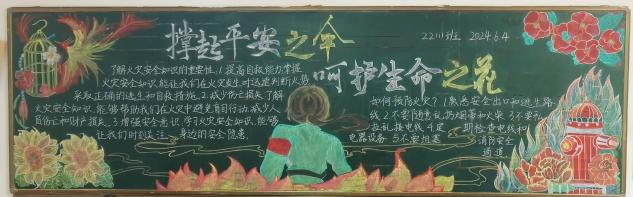 撑起平安之伞
呵护生命之花
22川班 2024.6.4
了解火灾安全知识的重要性:1.提高自救能力掌握
火灾安全知识,能让我们在火灾发生时迅速判断火势
采取正确的逃生和自救措施。2.减少伤亡损失 了解
火灾安全知识,能够帮助我们在火灾中避免盲目行动,减少人
员伤亡和财产损失。3.增强安全意识 学习火灾安全知识,能够
让我们时刻关注 身边的安全隐患。
如何预防火灾?1.熟悉安全出口和逃生路
线 2.不要随意乱扔烟蒂和火柴 3.不要私
拉乱接电线 4.定期检查电线和
电器设备 5.不要堵塞
消防安全
通道